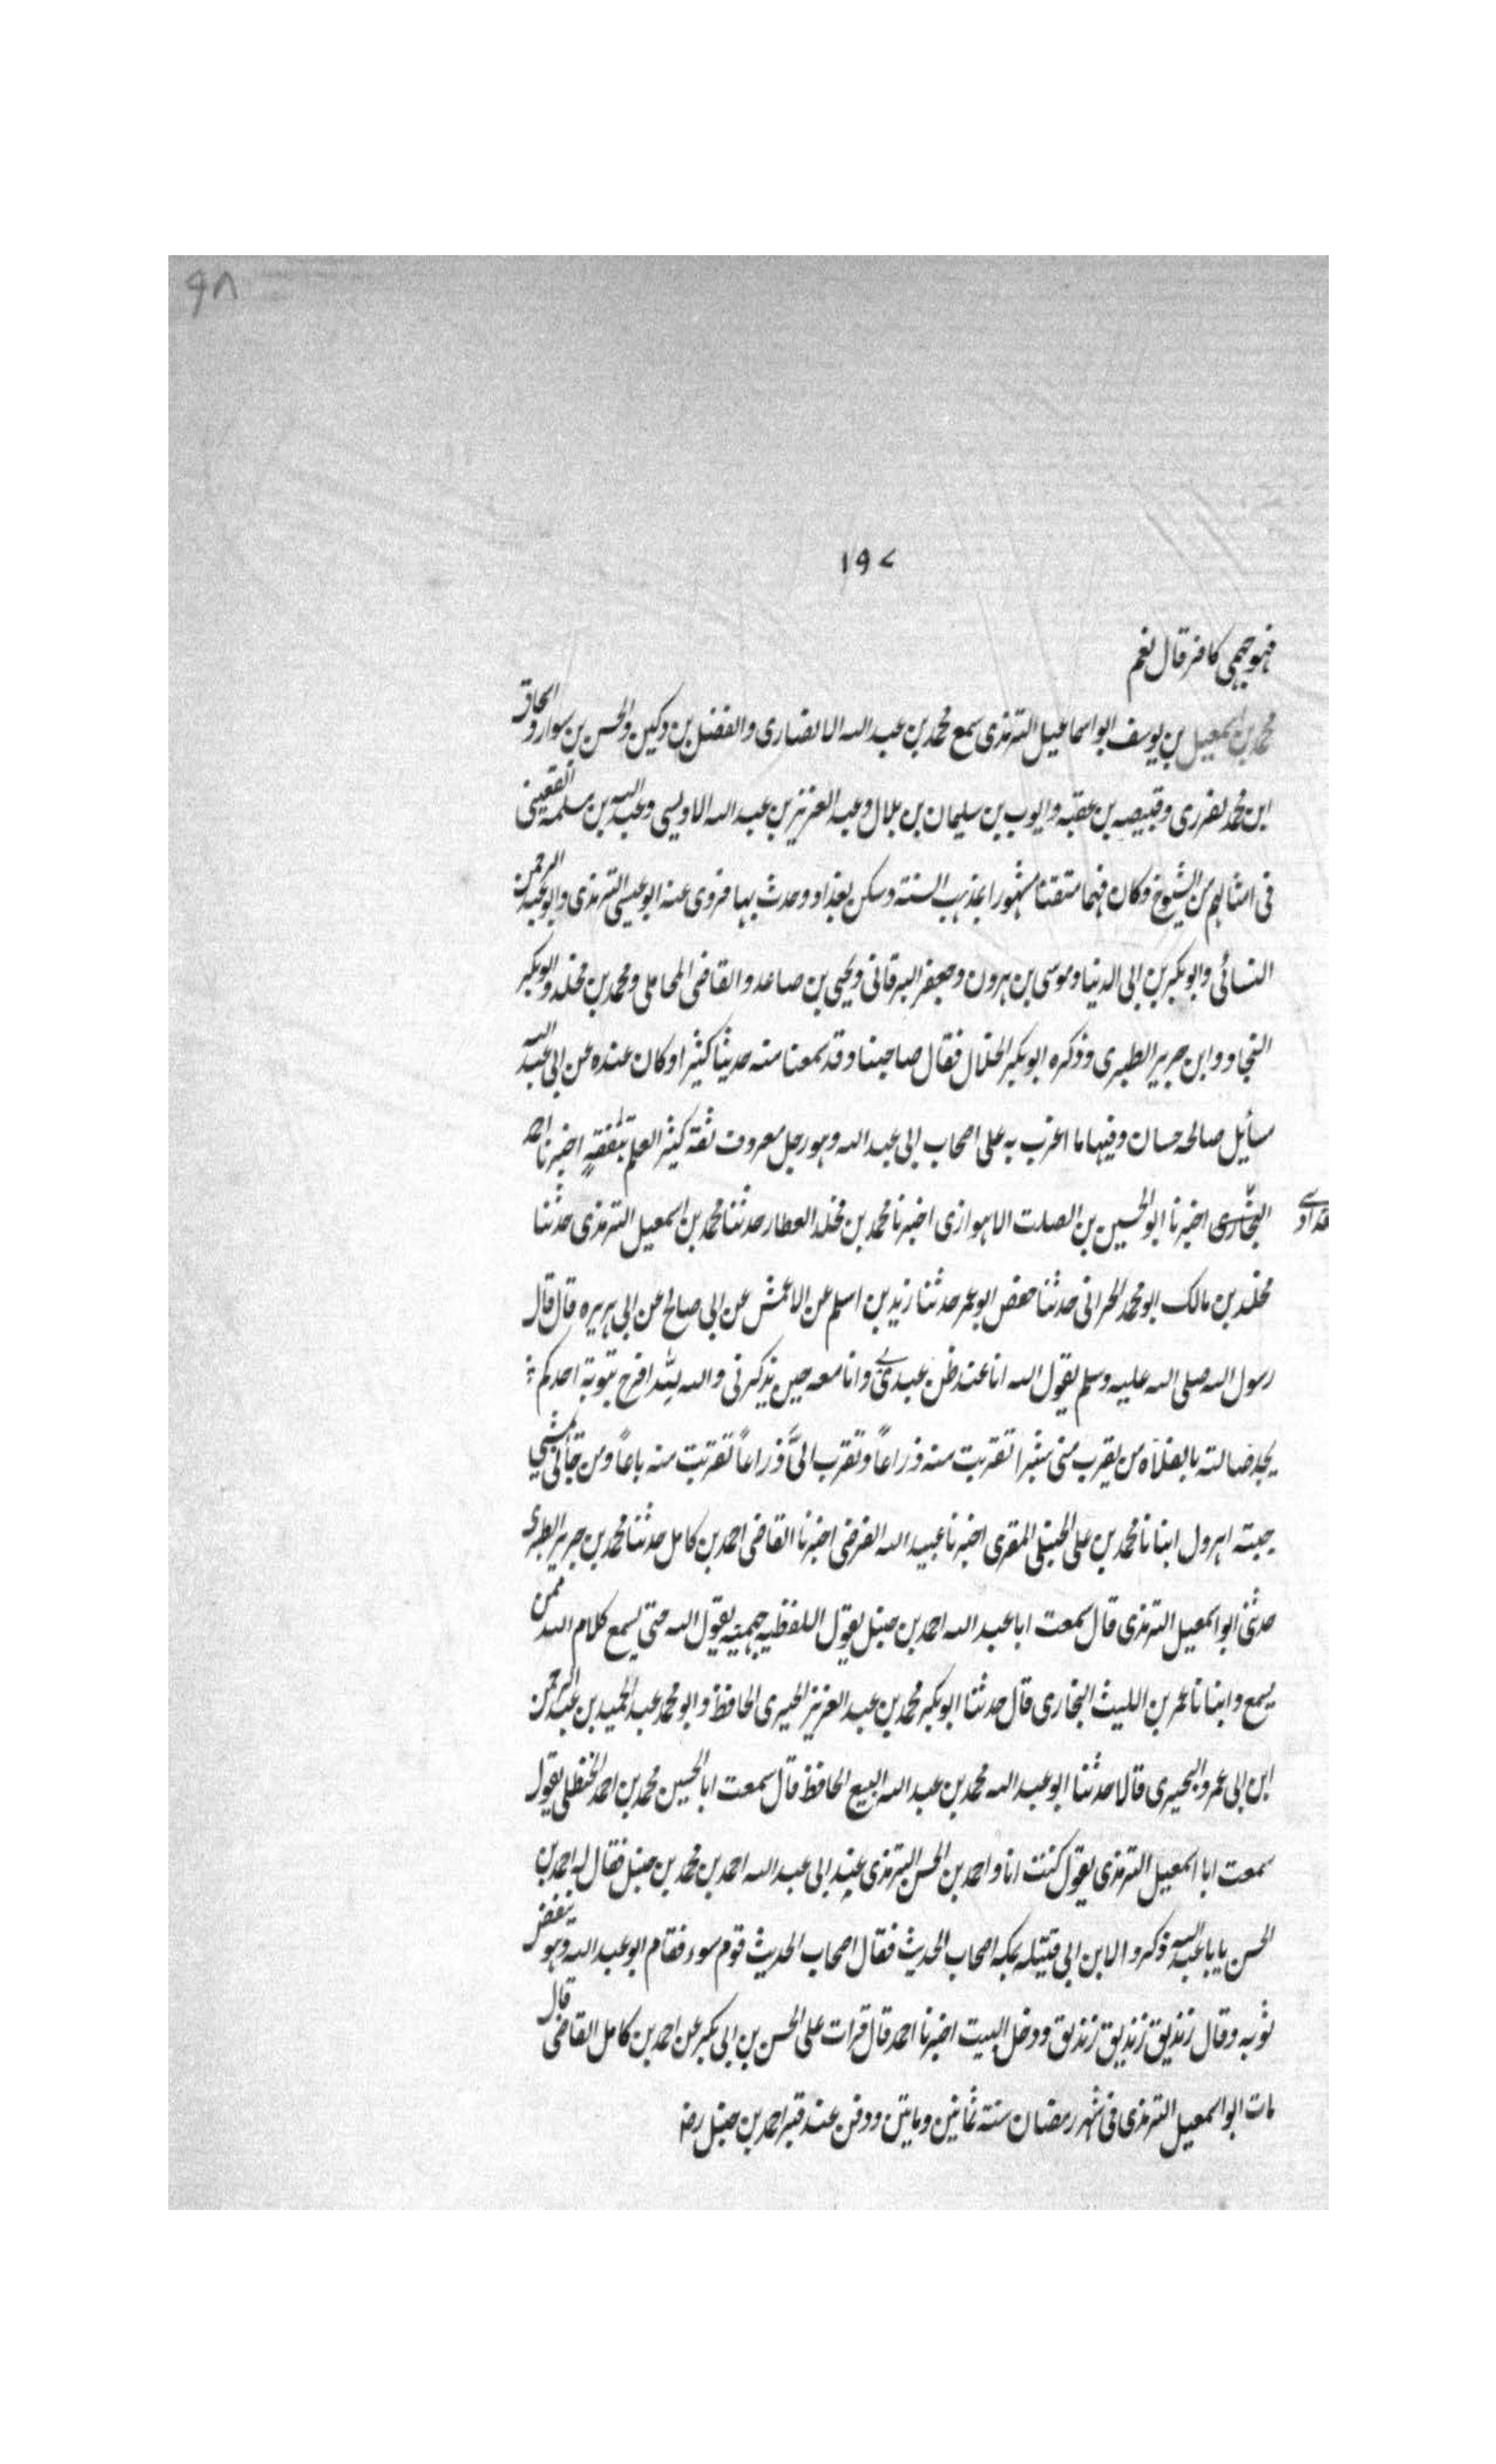 ٩٨
١٩٧
فهو جهمي كافر قال نعم
محمد بن اسمعيل بن يوسف ابو اسماعيل الترمذى سمع محمد بن عبد الله الانصارى والفضل بن دكين والحسن بن سوار و اسحاق
ابن محمد لفررى وقبيصه بن عقبه وايوب بن سليمان بن بلال وعبد العزيز بن عبد الله الاويسى وعبد الله بن مسلمه القعنبى
فى امثالهم من الشيوخ وكان فهما متقنا مشهورا بمذهب السنته وسكن بغداد وحدث بها فروى عنه ابو عيسى الترمذى وابو عبد الرحمن
النسائى وابو بكر بن ابى الدنيا وموسى بن هرون وجعفر البرقانى ويحيى بن صاعد والقاضى المحاملى ومحمد بن مخلد وابو بكر
النجاد وابن جرير الطبرى وذكره ابو بكر الخلال فقال صاحبنا وقد سمعنا منه حديثا كثيرا وكان عنده عن ابى عبد الله
مسائل صالحه حسان وفيها ما اغرب به على اصحاب ابى عبد الله وهو رجل معروف ثقة كثير العلم يتفقه اخبرنا احمد
البخارى اخبرنا ابو الحسين بن الصلت الاهوازى اخبرنا محمد بن مخلد العطار حدثنا محمد بن اسمعيل الترمذى حدثنا
مخلد بن مالك ابو محمد الحرانى حدثنا حفص ابو عمر حدثنا زيد بن اسلم عن الاعمش عن ابى صالح عن ابى هريره قال قال
رسول الله صلى الله عليه وسلم يقول الله انا عند ظن عبدى بى وانا معه حين يذكرنى والله لله افرح بتوبة احدكم
يجد ضالته بالفلاة من يقرب منى شبرا تقربت منه ذراعاً وتقرب الىَّ ذراعاً تقربت منه باعاً ومن جأنى يمشى
جيته اهرول انبانا محمد بن على الحنبلى المقرى اخبرنا عبيد الله الفرضى اخبرنا القاضى احمد بن كامل حدثنا محمد بن جرير الطبرى
حدثنى ابو اسمعيل الترمذى قال سمعت ابا عبد الله احمد بن حنبل يقول اللفظيه جهميه يقول الله حتى يسمع كلام الله ممن
يسمع وانبانا عمر بن الليث البخارى قال حدثنا ابو بكر محمد بن عبد العزيز الحيرى الحافظ وابو محمد عبد الحميد بن عبد الرحمن
ابن ابى عمرو البحيرى قالا حدثنا ابو عبد الله محمد بن عبد الله البيع الحافظ قال سمعت ابا الحسين محمد بن احمد الحنظلى يقول
سمعت ابا اسمعيل الترمذى يقول كنت انا واحمد بن الحسن الترمذى عند ابى عبد الله احمد بن محمد بن حنبل فقال له احمد بن
الحسن يابا عبد الله ذكروا لابن ابى قتيله بمكه اصحاب الحديث فقال اصحاب الحديث قوم سوء فقام ابو عبد الله وهو ينفض
ثوبه وقال زنديق زنديق زنديق ودخل البيت اخبرنا احمد قال قرات على الحسن بن ابى بكر عن احمد بن كامل القاضى قال
مات ابو اسمعيل الترمذى فى شهر رمضان سنته ثمانين وماتين ودفن عند قبر احمد بن حنبل رضه